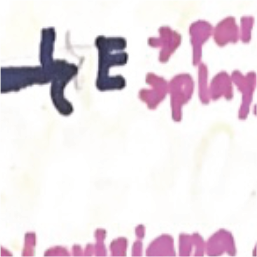 E → par
→ play
Louisiana